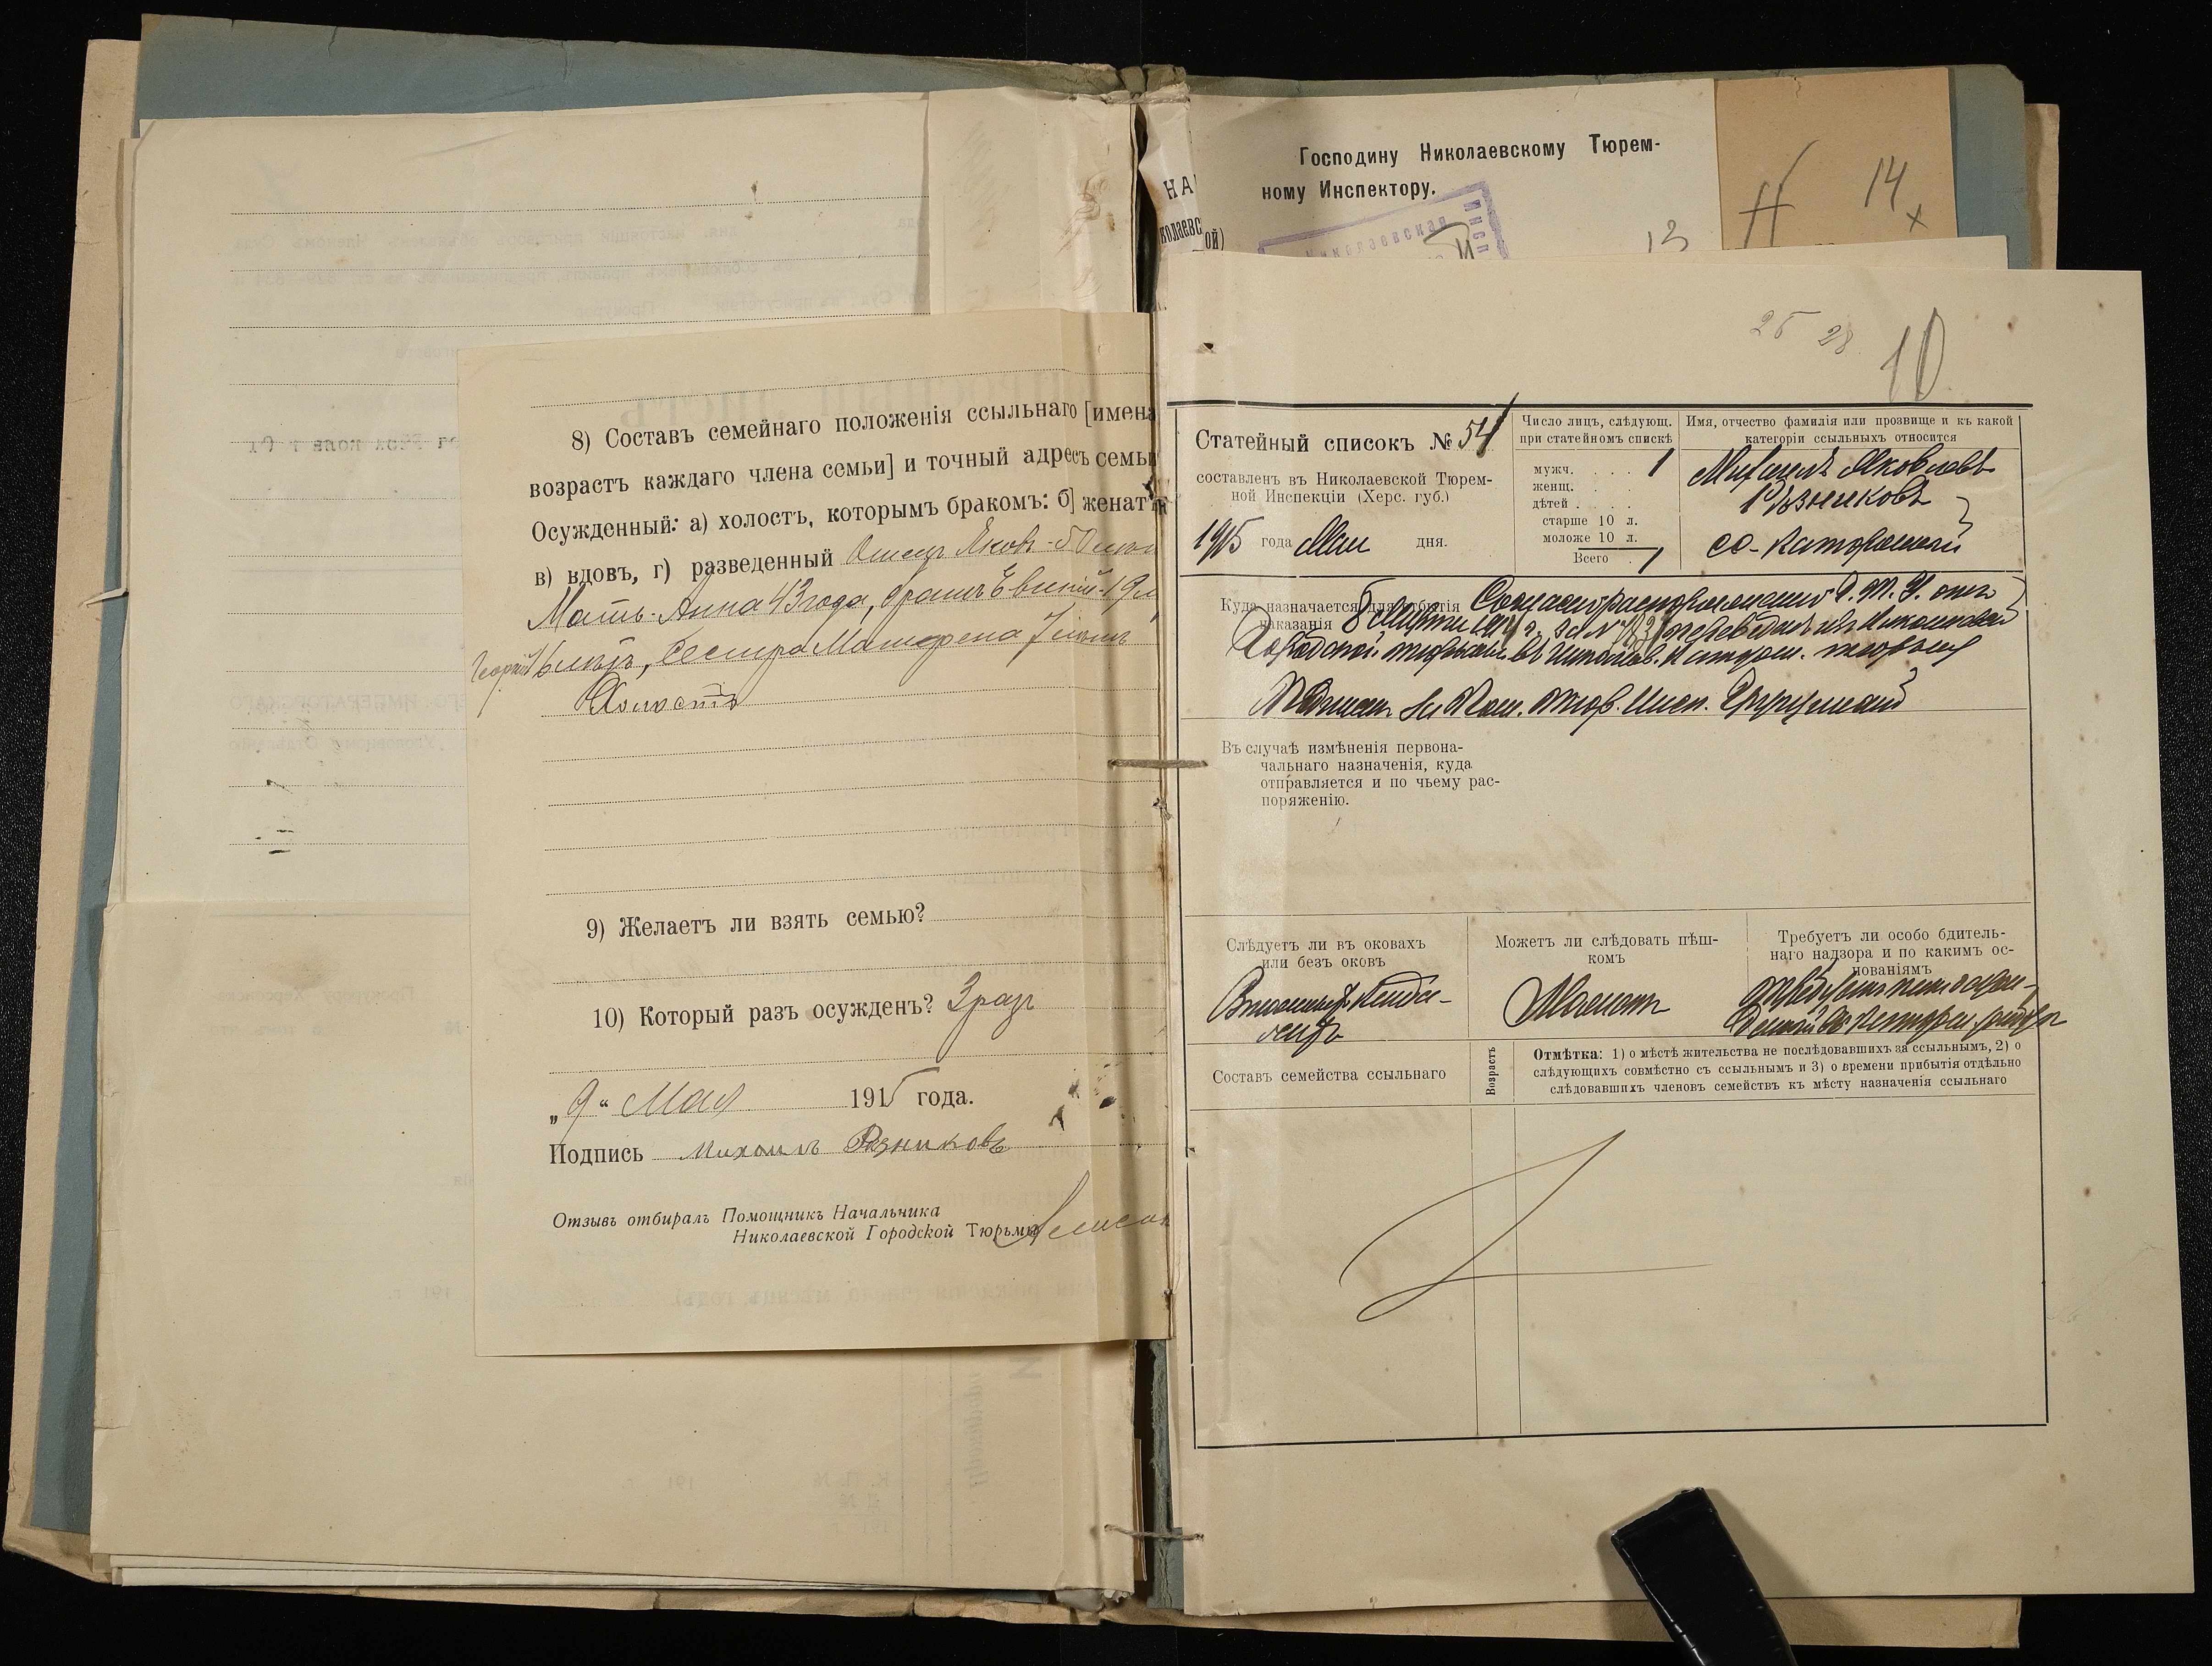 8) Составъ семейнаго положенія ссыльнаго [имена
возрастъ каждаго члена семьи] и точный адресъ семьи
Осужденный: а) холостъ, которымъ бракомъ: б] женатъ
в) вдовъ, г) разведенный Отецъ Яковъ - 50 лѣтъ
Мать - Анна 43 года, братъ Евгеній - 19 л
Георгій 16 лѣтъ, Сестра Матрена 7 лѣтъ
Холостъ
9) Желаетъ ли взять семью?
10) Который разъ осужденъ? 3 разъ
„9“ Мая 1915 года.
Подпись Михаилъ Рѣзниковъ
Отзывъ отбиралъ Помощникъ Начальника
Николаевской Городской Тюрьмы
Господину Николаевскому Тюрем-
ному Инспектору.
НА
колаевс
ой)
Николаевская
Инсп
13
14
25 28
10
Статейный списокъ № 54
составленъ въ Николаевской Тюрем-
ной Инспекціи (Херс. губ.)
1915 года Мая дня.
Число лицъ, слѣдующ.
при статейномъ спискѣ
мужч. . . . . 1
женщ. . . .
дѣтей . . . .
старше 10 л.
моложе 10 л.
Всего . 1
Имя, отчество фамилія или прозвище и къ какой
категоріи ссыльныхъ относится
Михаилъ Яковлевъ
Рѣзниковъ
сс.-каторжный
Куда назначается для отбытія
наказанія
Согласно распоряженію Г. Т. У. отъ
8 Марта 1914 г. за № переведенъ изъ Николаевской
Городской тюрьмы въ Николаев. Каторжн. тюрьму
Подписалъ за Пом. Тюр. Инсп.
Въ случаѣ измѣненія первона-
чальнаго назначенія, куда
отправляется и по чьему рас-
поряженію.
Слѣдуетъ ли въ оковахъ
или безъ оковъ
Можетъ ли слѣдовать пѣш-
комъ
Можетъ
Требуетъ ли особо бдитель-
наго надзора и по какимъ ос-
нованіямъ
Составъ семейства ссыльнаго
Возрастъ
Отмѣтка: 1) о мѣстѣ жительства не послѣдовавшихъ за ссыльнымъ, 2) о
слѣдующихъ совмѣстно съ ссыльнымъ и 3) о времени прибытія отдѣльно
слѣдовавшихъ членовъ семействъ къ мѣсту назначенія ссыльнаго